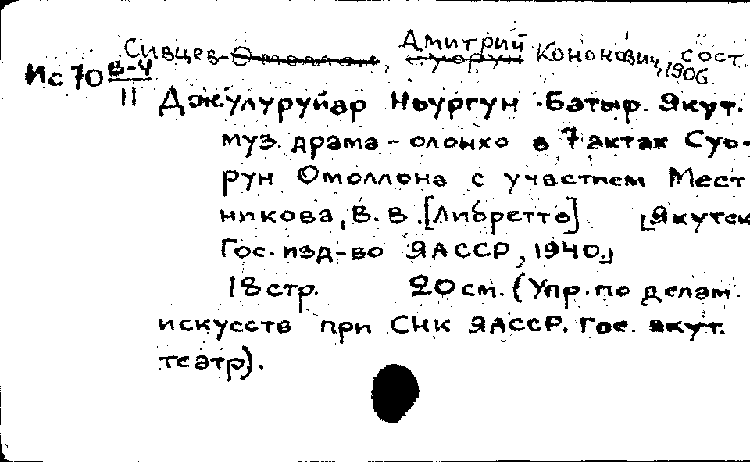 Сивцев-Омоллон, Дмитрий Кононович, сост.
Ис70 в-4 1906
11 Джулуруйар Ньургун Батыр. Якут.
муз. драма - олонхо в 7 актах Суо-
рун Омоллона с участием Мест
никова, В. В. [Либретто] [Якутск
Гос. изд-во ЯАССР, 1940.]
18 стр. 20 см. (Упр. по делам
искусств при СНК ЯАССР. Гос. якут.
театр).